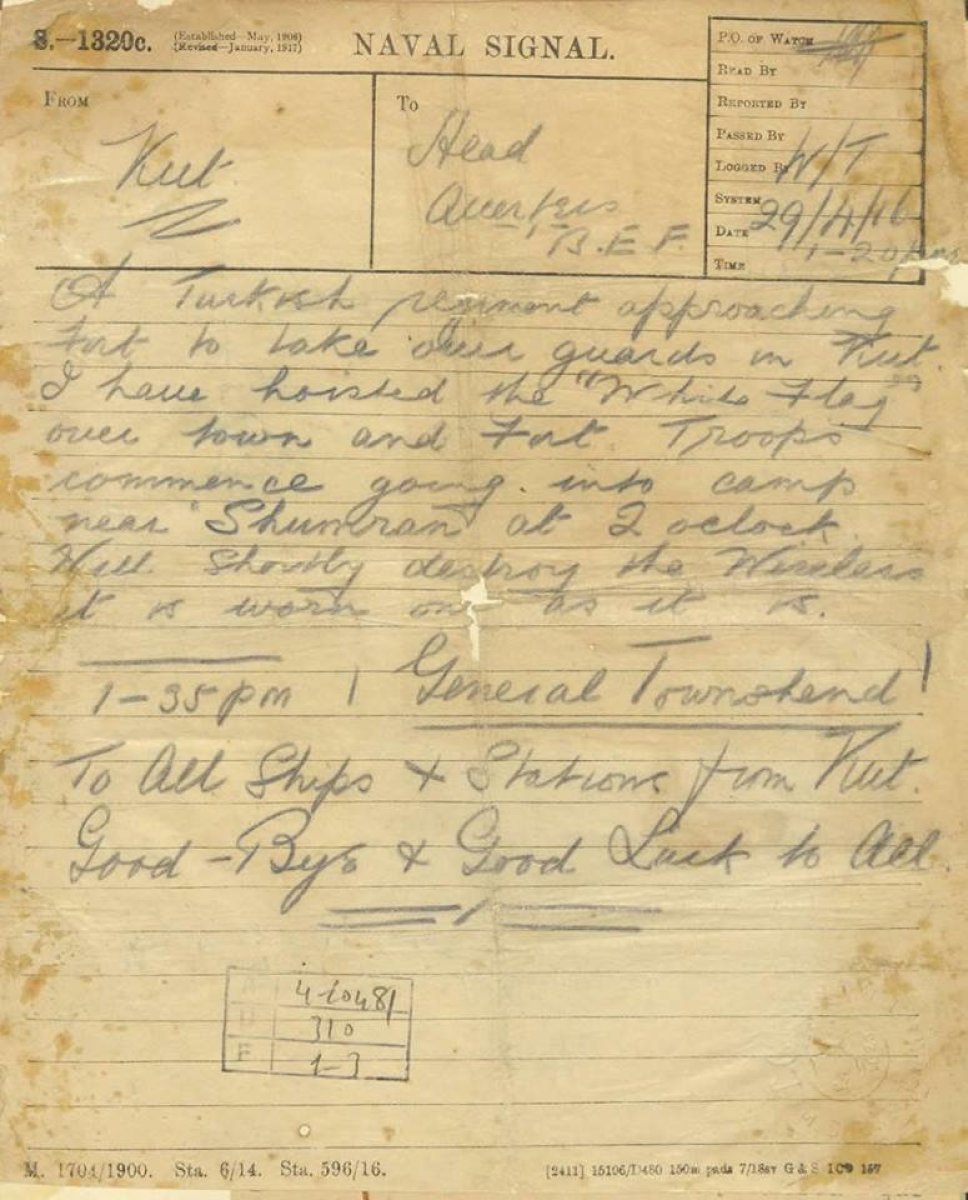 S.—1320c.
(Established—May, 1906)
(Revised—January, 1917)
NAVAL SIGNAL.
P.O. OF WATCH
READ BY
REPORTED BY
PASSED BY
LOGGED BY W/T
SYSTEM
DATE 29/4/16
TIME 1-20 pm
FROM
Kut
TO
Head
Quarters
B.E.F.
A Turkish regiment approaching
Fort to take over guards in Kut.
I have hoisted the "White Flag"
over town and Fort. Troops
commence going into camp
near Shumran at 2 oclock.
Will Shortly destroy the Wireless
it is worn out as it is.
1-35 pm General Townshend
To All Ships + Stations from Kut.
Good-Bye + Good Luck to All.
310
F 1-3
M. 1704/1900. Sta. 6/14. Sta. 596/16.
[2411] 15106/D480 150m pads 7/18 G & S 157